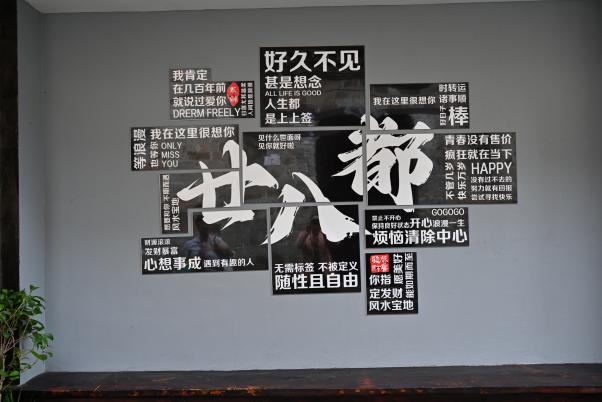 好久不见
甚是想念
ALL LIFE IS GOOD
人生都
是上上签
我肯定
在几百年前
就说过爱你
DRERM FREELY
时转运
诸事顺
我在这里很想你
好日子
棒
等浪漫
我在这里很想你
也等你
ONLY
MISS
YOU
见什么世面呀
见你就好啦
青春没有售价
疯狂就在当下
不管几岁
快乐万岁
HAPPY
没有过不去的
努力就有回报
尝试寻找快乐
廿八都
风水宝地
财源滚滚
发财暴富
心想事成
遇到有趣的人
无需标签 不被定义
随性且自由
GOGOGO
禁止不开心
保持良好状态
开心
浪漫一生
烦恼清除中心
愿美好
能如期而至
你指
定发财
风水宝地